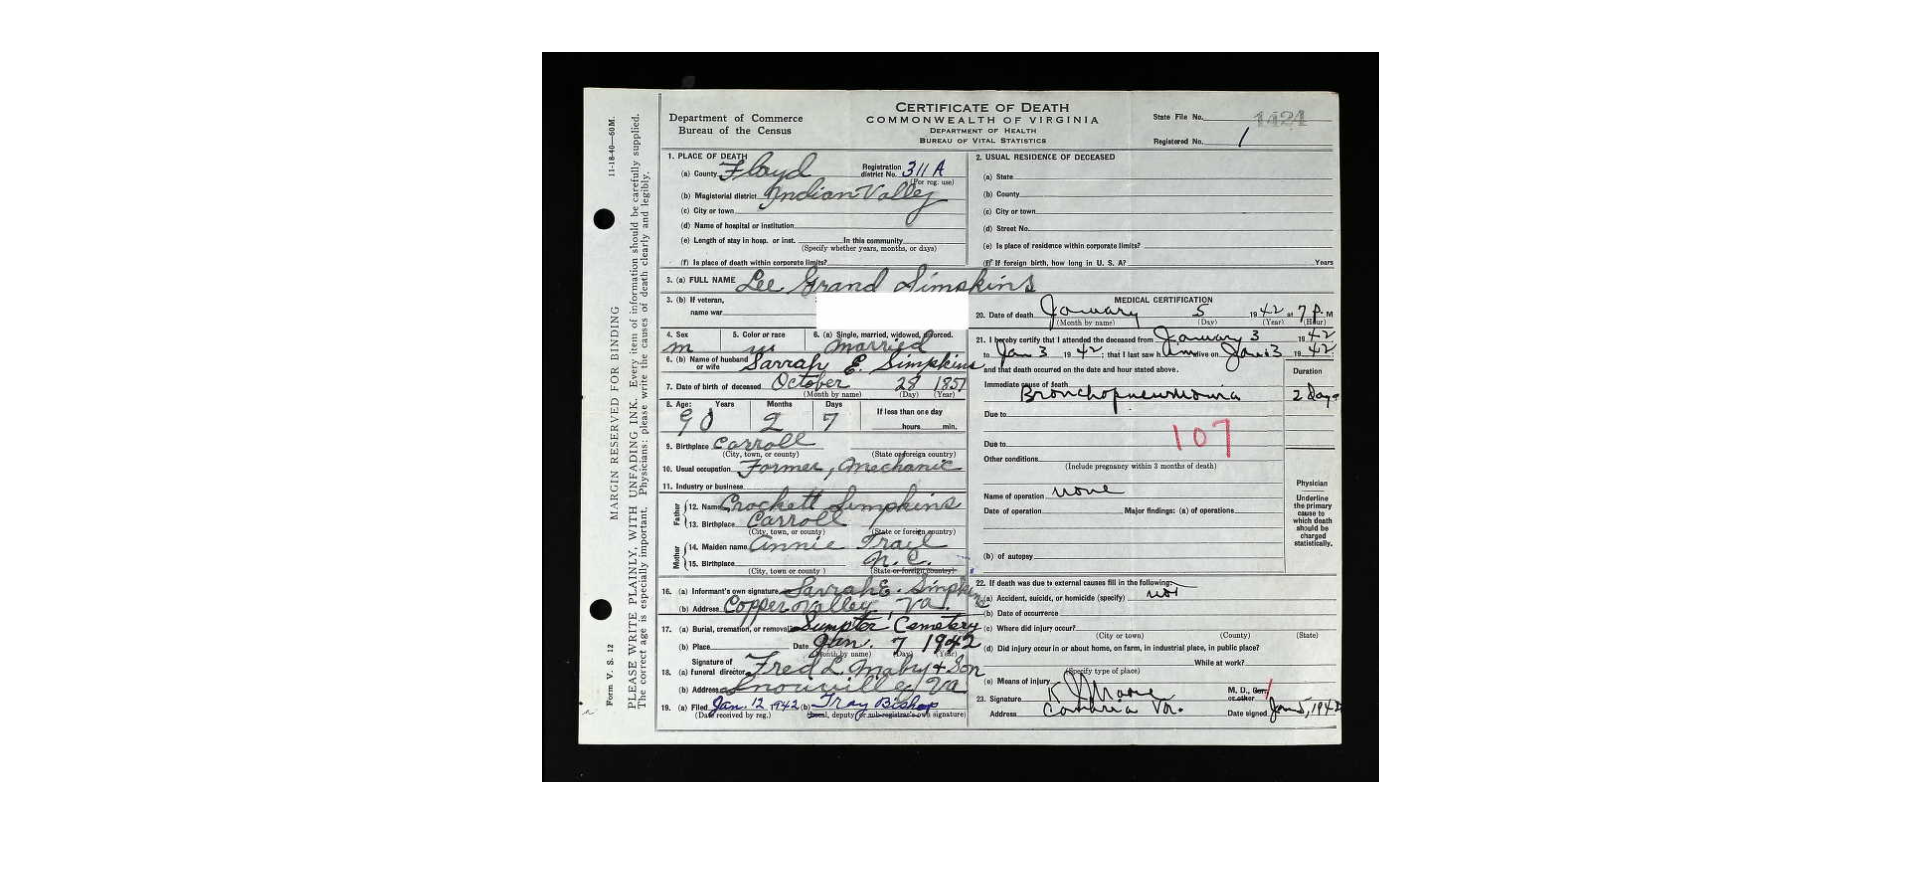 CERTIFICATE OF DEATH
COMMONWEALTH OF VIRGINIA
DEPARTMENT OF HEALTH
BUREAU OF VITAL STATISTICS
Department of Commerce
Bureau of the Census
State File No. 1424
Registered No. 1
11-18-40—50M.
MARGIN RESERVED FOR BINDING
PLEASE WRITE PLAINLY, WITH UNFADING INK. Every item of information should be carefully supplied.
The correct age is especially important. Physicians: please write the causes of death clearly and legibly.
Form V. S. 12
1. PLACE OF DEATH
(a) County Floyd Registration district No. 311 A
(For reg. use)
(b) Magisterial district Indian Valley
(c) City or town
(d) Name of hospital or institution
(e) Length of stay in hosp. or inst. In this community
(Specify whether years, months, or days)
(f) Is place of death within corporate limits?
2. USUAL RESIDENCE OF DECEASED
(a) State
(b) County
(c) City or town
(d) Street No.
(e) Is place of residence within corporate limits?
(f) If foreign birth, how long in U. S. A? Years
3. (a) FULL NAME Lee Grand Simpkins
3. (b) If veteran,
name war
4. Sex 5. Color or race 6. (a) Single, married, widowed, divorced.
m w married
6. (b) Name of husband or wife Sarrah E. Simpkins
7. Date of birth of deceased October 28 1851
(Month by name) (Day) (Year)
8. Age: Years Months Days If less than one day
90 2 7 hours min.
9. Birthplace Carroll
(City, town, or county) (State or foreign country)
10. Usual occupation Former, Mechanic
11. Industry or business
Father
12. Name Crockett Simpkins
13. Birthplace Carroll
(City, town, or county) (State or foreign country)
Mother
14. Maiden name Annie Trail
15. Birthplace N.C.
(City, town or county) (State or foreign country)
16. (a) Informant's own signature Sarrah E. Simpkins
(b) Address Copper Valley, Va.
17. (a) Burial, cremation, or removal Sumpter Cemetery
(b) Place Date Jan. 7 1942
(Month by name) (Day) (Year)
Signature of
18. (a) funeral director Fred L. Maby & Son
(b) Address Snowville Va
19. (a) Filed Jan. 12, 1942 (b) Tray Bishop
(Date received by reg.) (Local, deputy or sub-registrar's own signature)
MEDICAL CERTIFICATION
20. Date of death January 5 1942 at 7 P. M
(Month by name) (Day) (Year) (Hour)
21. I hereby certify that I attended the deceased from January 3 1942
to Jan 3 1942; that I last saw him alive on Jan 3 1942
and that death occurred on the date and hour stated above. Duration
Immediate cause of death
Bronchopneumonia 2 Days
Due to
107
Due to
Other conditions
(Include pregnancy within 3 months of death)
Name of operation none
Date of operation Major findings: (a) of operations
(b) of autopsy
Physician
Underline
the primary
cause to
which death
should be
charged
statistically.
22. If death was due to external causes fill in the following:
(a) Accident, suicide, or homicide (specify) not
(b) Date of occurrence
(c) Where did injury occur?
(City or town) (County) (State)
(d) Did injury occur in or about home, on farm, in industrial place, in public place?
While at work?
(Specify type of place)
(e) Means of injury
23. Signature M. D., or other
Address Va. Date signed Jan 5, 1942